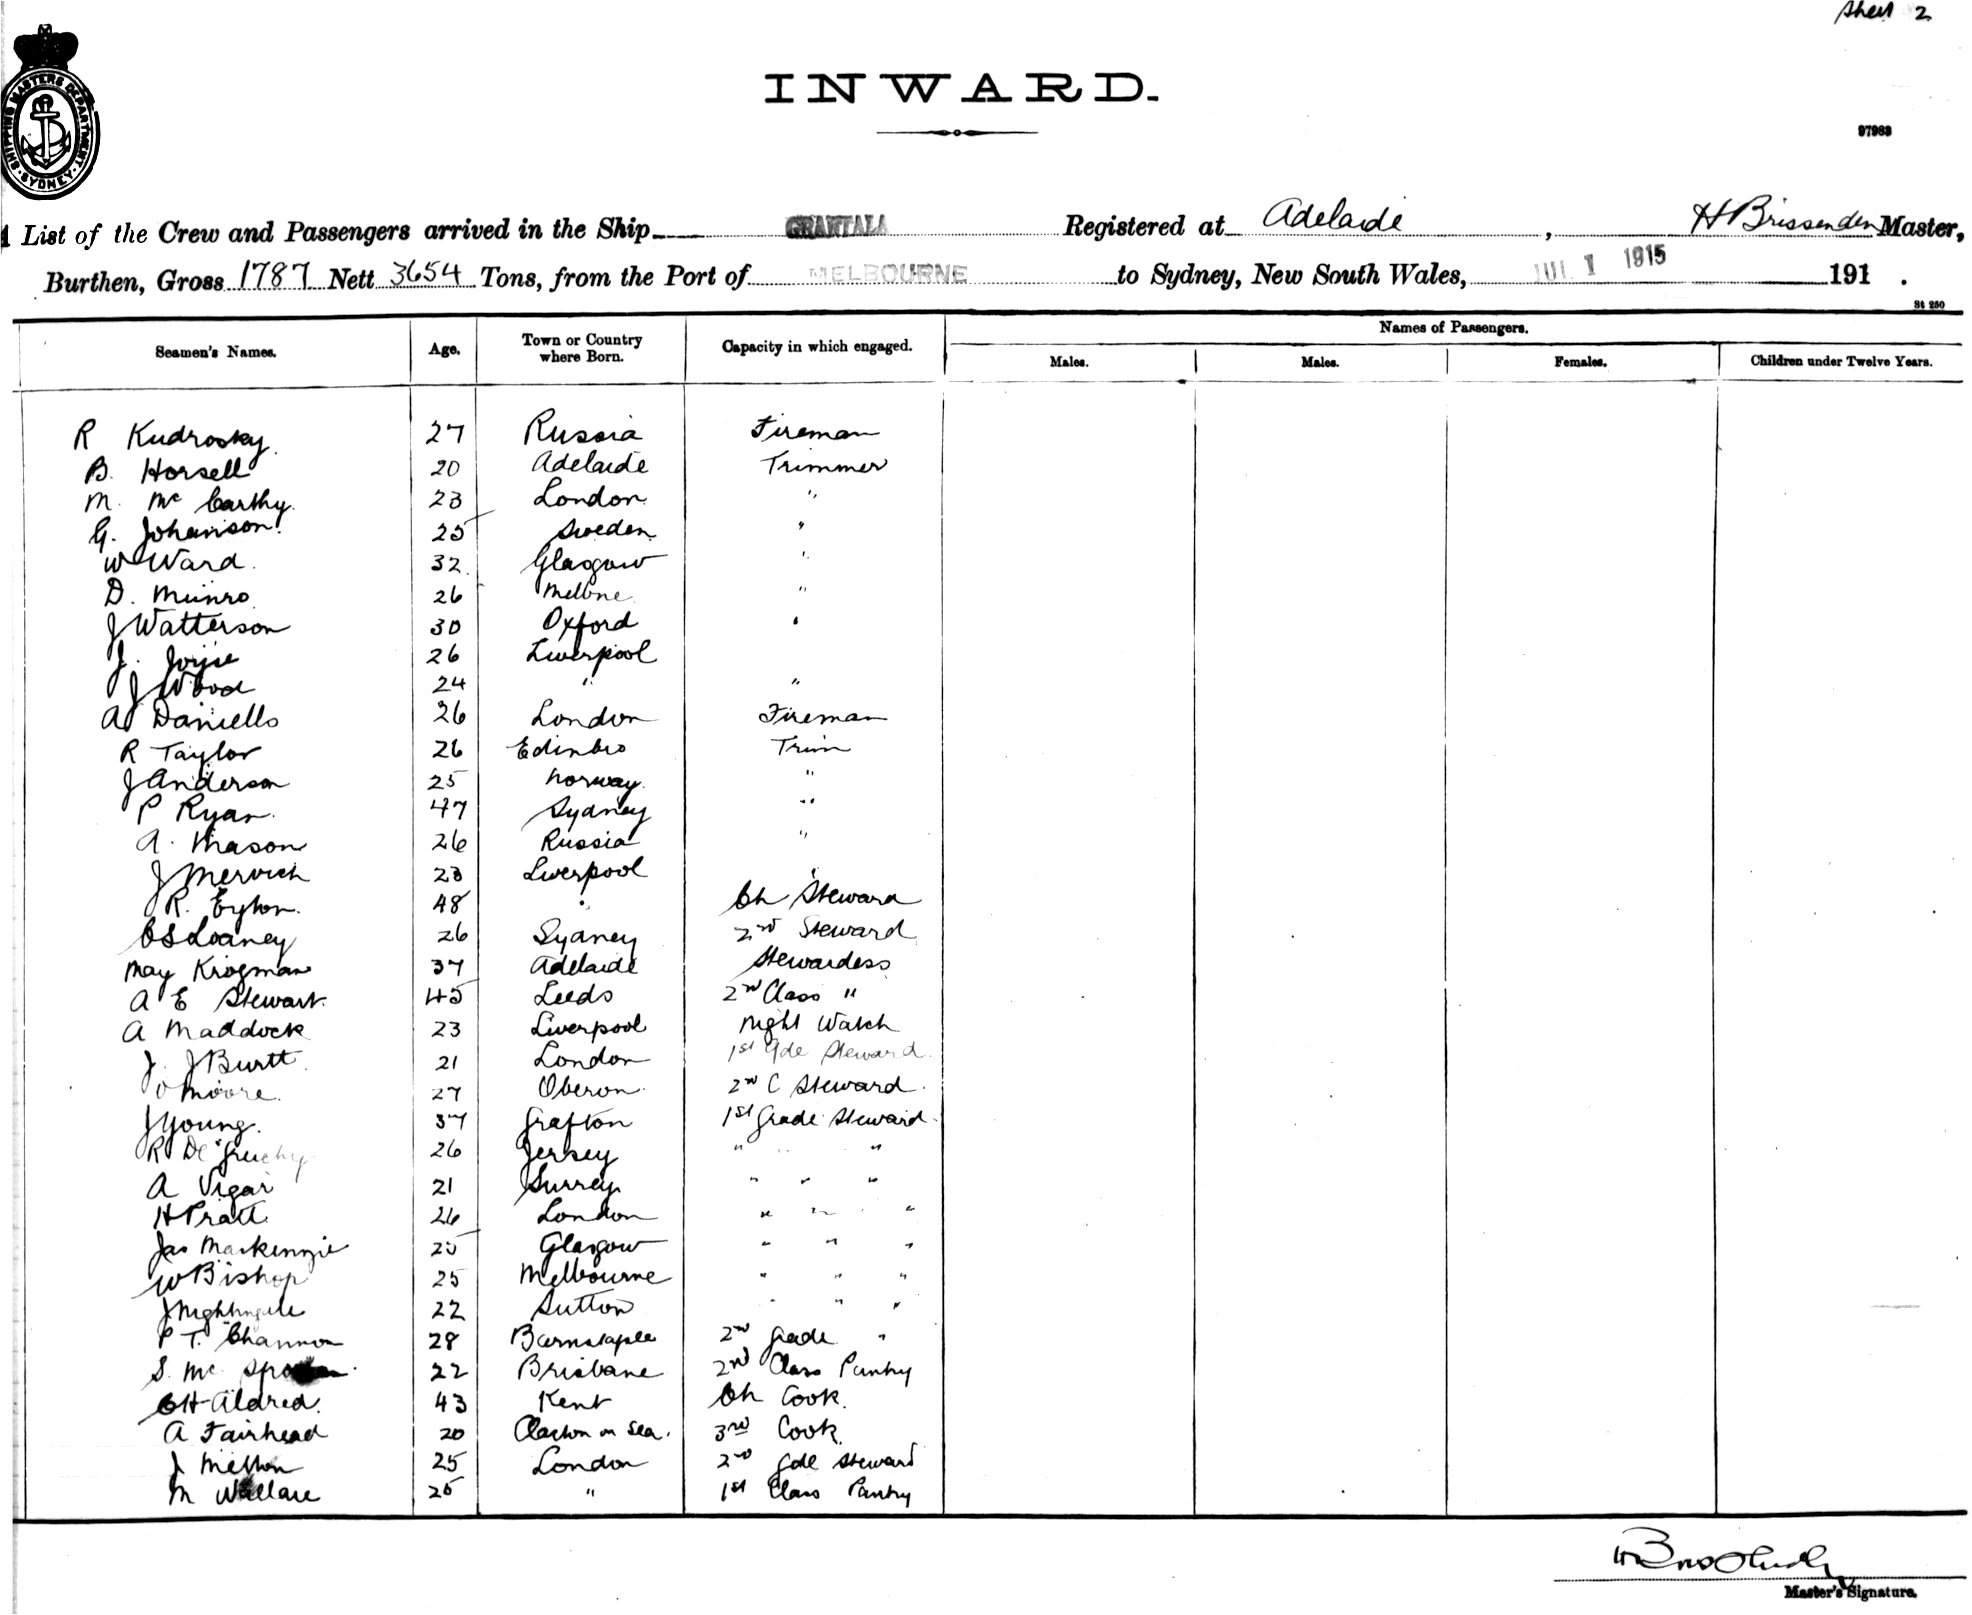 Sheet 2
SHIPPING MASTERS DEPARTMENT
SYDNEY
INWARD.
97983
A List of the Crew and Passengers arrived in the Ship GRANTALA Registered at Adelaide, H Brissenden Master,
Burthen, Gross 1787 Nett 3654 Tons, from the Port of MELBOURNE to Sydney, New South Wales, JUL 1 1915 191 .
St 250
Seamen's Names. Age. Town or Country where Born. Capacity in which engaged. Names of Passengers.
Males. Males. Females. Children under Twelve Years.
R Kudrosky 27 Russia Fireman
B. Horsell 20 Adelaide Trimmer
M. McCarthy. 23 London "
G. Johanson. 25 Sweden "
W Ward. 32 Glasgow "
D. Munro 26 Melbne "
J Watterson 30 Oxford "
J. Joyse 26 Liverpool
J Wood 24 " "
A Daniells 26 London Fireman
R Taylor 26 Edinbro Trim
J Anderson 25 Norway. "
P Ryan. 47 Sydney "
A. Mason 26 Russia "
J Mervich 23 Liverpool "
R. Eyton. 48 " Ch Steward
C S Loaney 26 Sydney 2nd Steward
May Krogman 37 Adelaide Stewardess
A E Stewart. 45 Leeds 2nd Class "
A Maddock 23 Liverpool Night Watch
J. J Burtt 21 London 1st Gde Steward.
Moore. 27 Oberon. 2nd C Steward.
J Young. 37 Grafton 1st Grade Steward.
R De Gruchy 26 Jersey " "
A Vigar 21 Surrey " " "
H Pratt 26 London " " "
Jas Mackenzie 25 Glasgow " " "
W Bishop 25 Melbourne " " "
J Nightingale 22 Sutton " " "
P T. Channon 28 Barnstaple 2nd Grade "
S. Mc 22 Brisbane 2nd Class Pantry
C H Aldred. 43 Kent Ch Cook.
A Fairhead 20 Clacton on Sea. 3rd Cook.
J Melton 25 London 2nd Gde Steward
M Wallace 25 " 1st Class Pantry
Master's Signature.